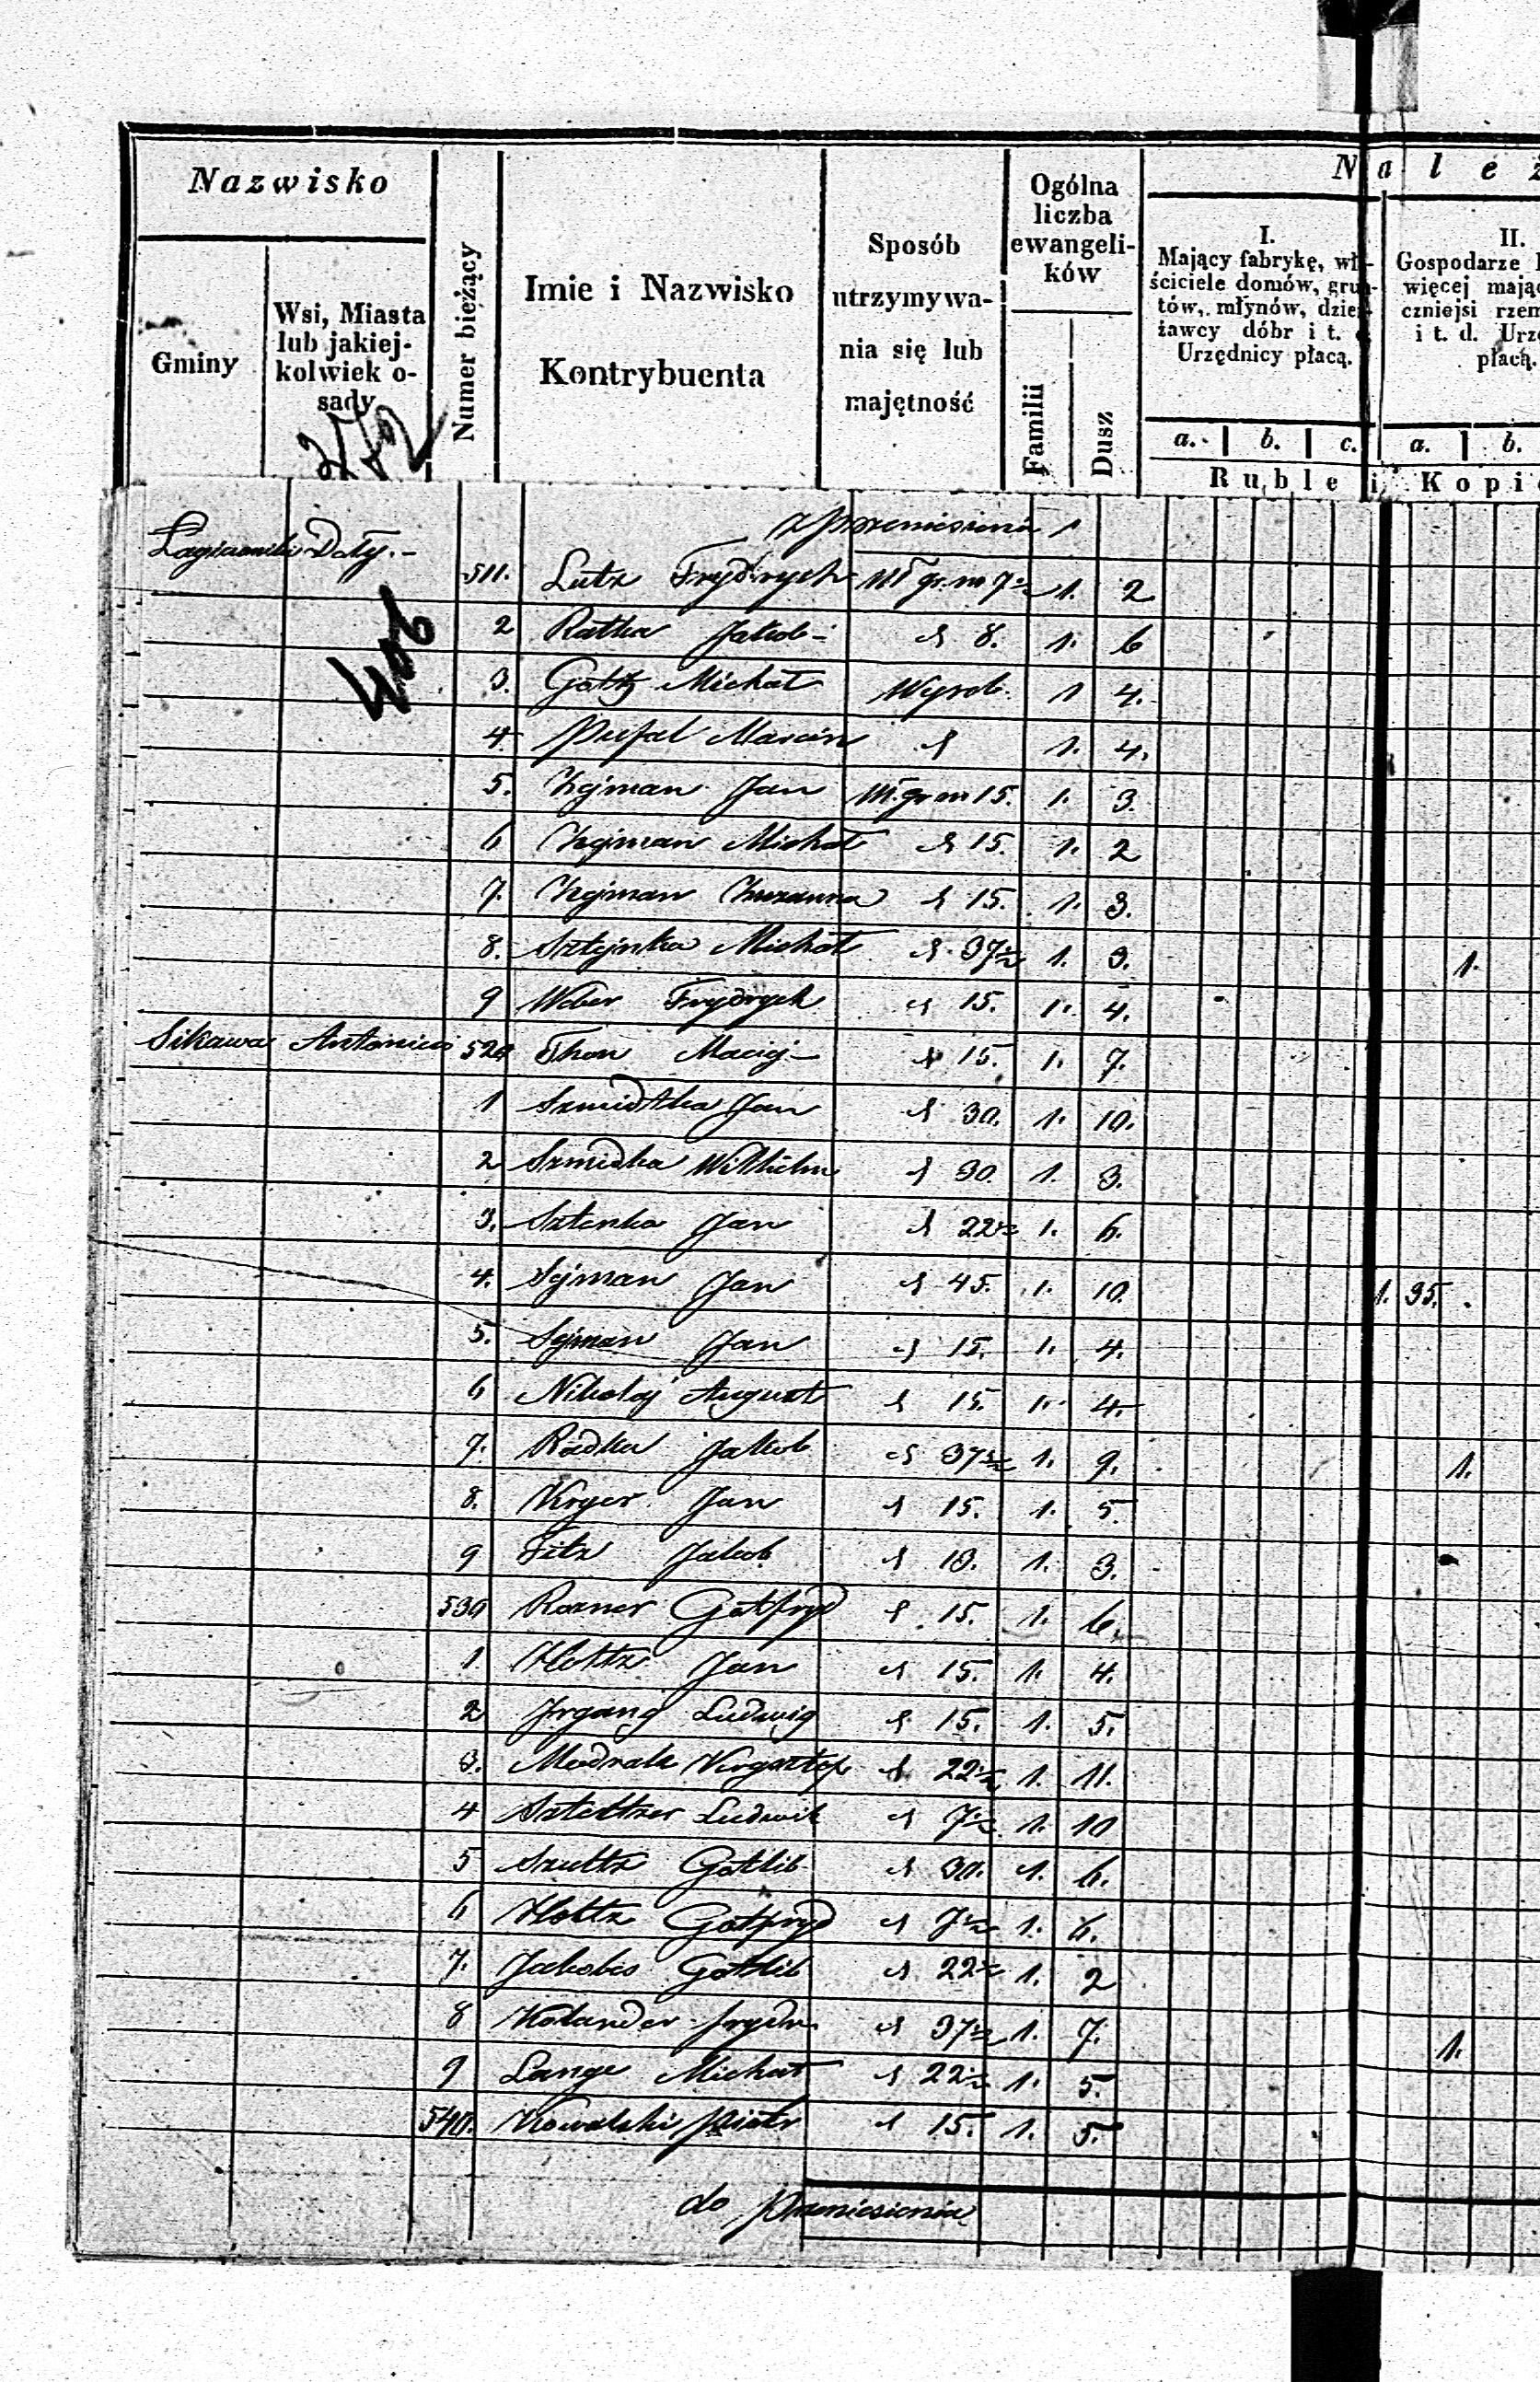 Nazwisko
Gminy
Wsi, Miasta
lub jakiej-
kolwiek o-
sady
Numer bieżący
Imie i Nazwisko
Kontrybuenta
Sposób
utrzymywa-
nia się lub
majętność
Ogólna
liczba
ewangeli-
ków
Familii
Dusz
N a l e ż
I.
Mający fabrykę, wł-
ściciele domów, grun-
tów, młynów, dzier-
żawcy dóbr i t.
Urzędnicy płacą.
II.
Gospodarze
więcej mają
czniejsi rzem
i t. d. Urzę
płacą.
a. b. c. a. b.
Ruble i Kopie
z przeniesienia
Łagiewniki Doły.
511. Lutz Frydrych 7½ 1. 2
2 Ratka Jakob 8. 1. 6
3. Gottz Michał Wyrob. 1 4.
4 Pufal Marcin 1. 4.
5. Zejman Jan 15. 1. 3.
6 Zejman Michał 15. 1. 2
7. Zejman Zuzanna 15. 1. 3.
8. Sztejnka Michał 37½ 1. 3. 1.
9 Weber Frydrych 15. 1. 4.
Sikawa Antoniew 520 Thon Maciej 15. 1. 7.
1 Szmidtka Jan 30. 1. 10.
2 Szmidka Wilhelm 30 1. 3.
3. Sztenka Jan 22½ 1. 6.
4. Sejman Jan 45. 1. 10. 1. 35.
5. Sejman Jan 15. 1. 4.
6 Nikolaj August 15. 1. 4.
7. Radka Jakob 37½ 1. 9. 1.
8. Kryger Jan 15. 1. 5.
9 Fitz Jakob 1. 3.
530 Rozner Gotfryd 15. 1. 6.
1. Holtz Jan 15. 1. 4.
2 Jrgang Ludwig 15. 1. 5.
3. Modrak Krysztof 22½ 1. 11.
4 Ludwik 7½ 1. 10
5 Szultz Gotlib 30. 1. 6.
6 Holtz Gotfryd 7½ 1. 6.
7. Jakobs Gotlib 22½ 1. 2
8 Kolander Frydr. 37½ 1. 7. 1.
9 Lange Michał 22½ 1. 5.
540. Kowalski Piotr 15. 1. 5.
do przeniesienia